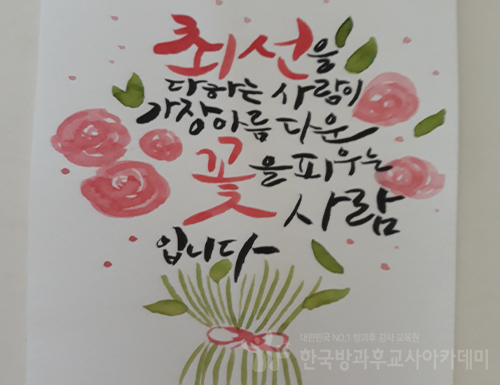 최선을
다하는 사람이
가장아름다운
꽃을피우는
사람
입니다
대한민국 NO.1 방과후 강사 교육원
한국방과후교사아카데미